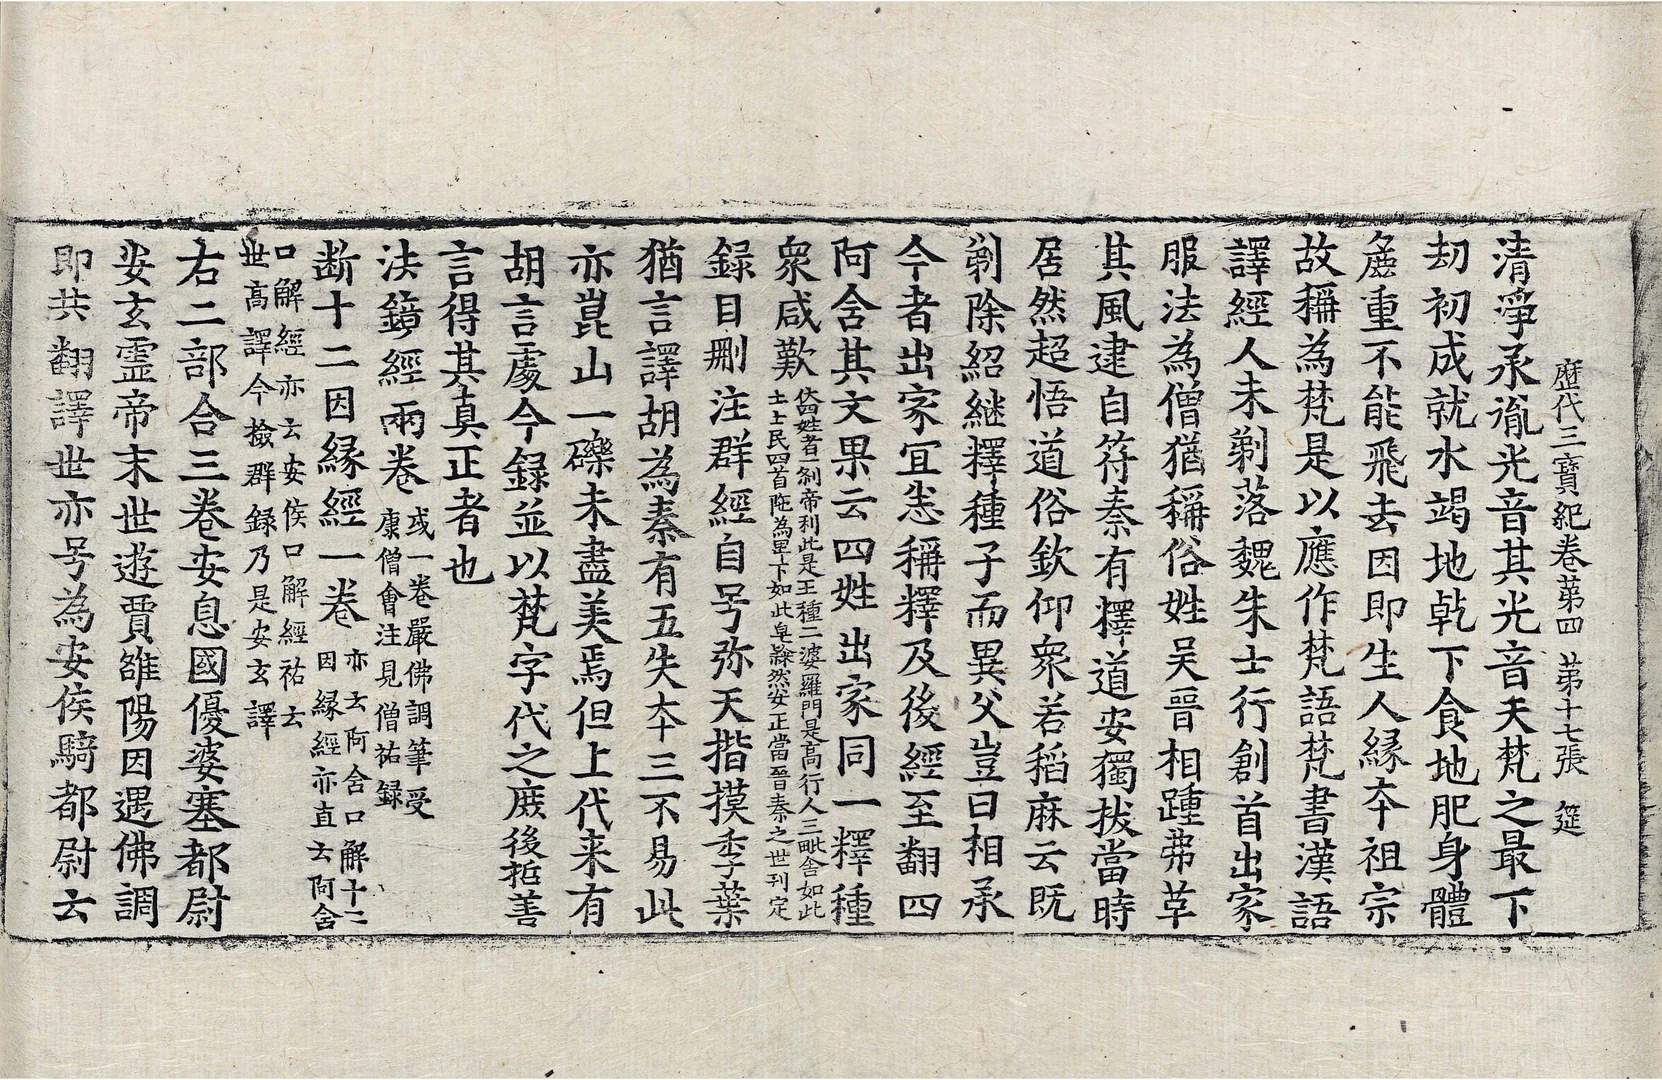 歷代三寶紀卷第四 第十七張 筵
清淨承胤光音其光音天梵之最下
劫初成就水竭地乾下食地肥身體
麁重不能飛去因即生人縁夲祖宗
故稱為梵是以應作梵語梵書漢語
譯經人未剃落魏朱士行創首出家
服法為僧猶稱俗姓吴晉相踵弗革
其風逮自苻秦有釋道安獨拔當時
居然超悟道俗欽仰衆若稻麻云既
剃除紹継釋種子而異父豈曰相承
今者出家宜悉稱釋及後經至翻四
阿含其文果云四姓出家同一釋種
衆咸歎佽四姓者一刹帝利此是王種二婆羅門是高行人三毗舍如此
土士民四首陁為卑下如此皂𨽻然安正當晉秦之世刊定
録目刪注群經自号弥天揩摸季葉
猶言譯胡為秦有五失夲三不易此
亦崑山一礫未盡美焉但上代来有
胡言處今録並以梵字代之庶後哲善
言得其真正者也
法鏡經兩卷或一卷嚴佛調筆受
康僧會注見僧祐録
断十二因縁經一卷亦云阿含口解十二
因縁經亦直云阿含
口解經亦云安侯口解經祐云
世高譯今撿群録乃是安玄譯
右二部合三卷安息國優婆塞都尉
安玄霊帝末世遊賈雒陽因遇佛調
即共翻譯世亦号為安侯騎都尉云